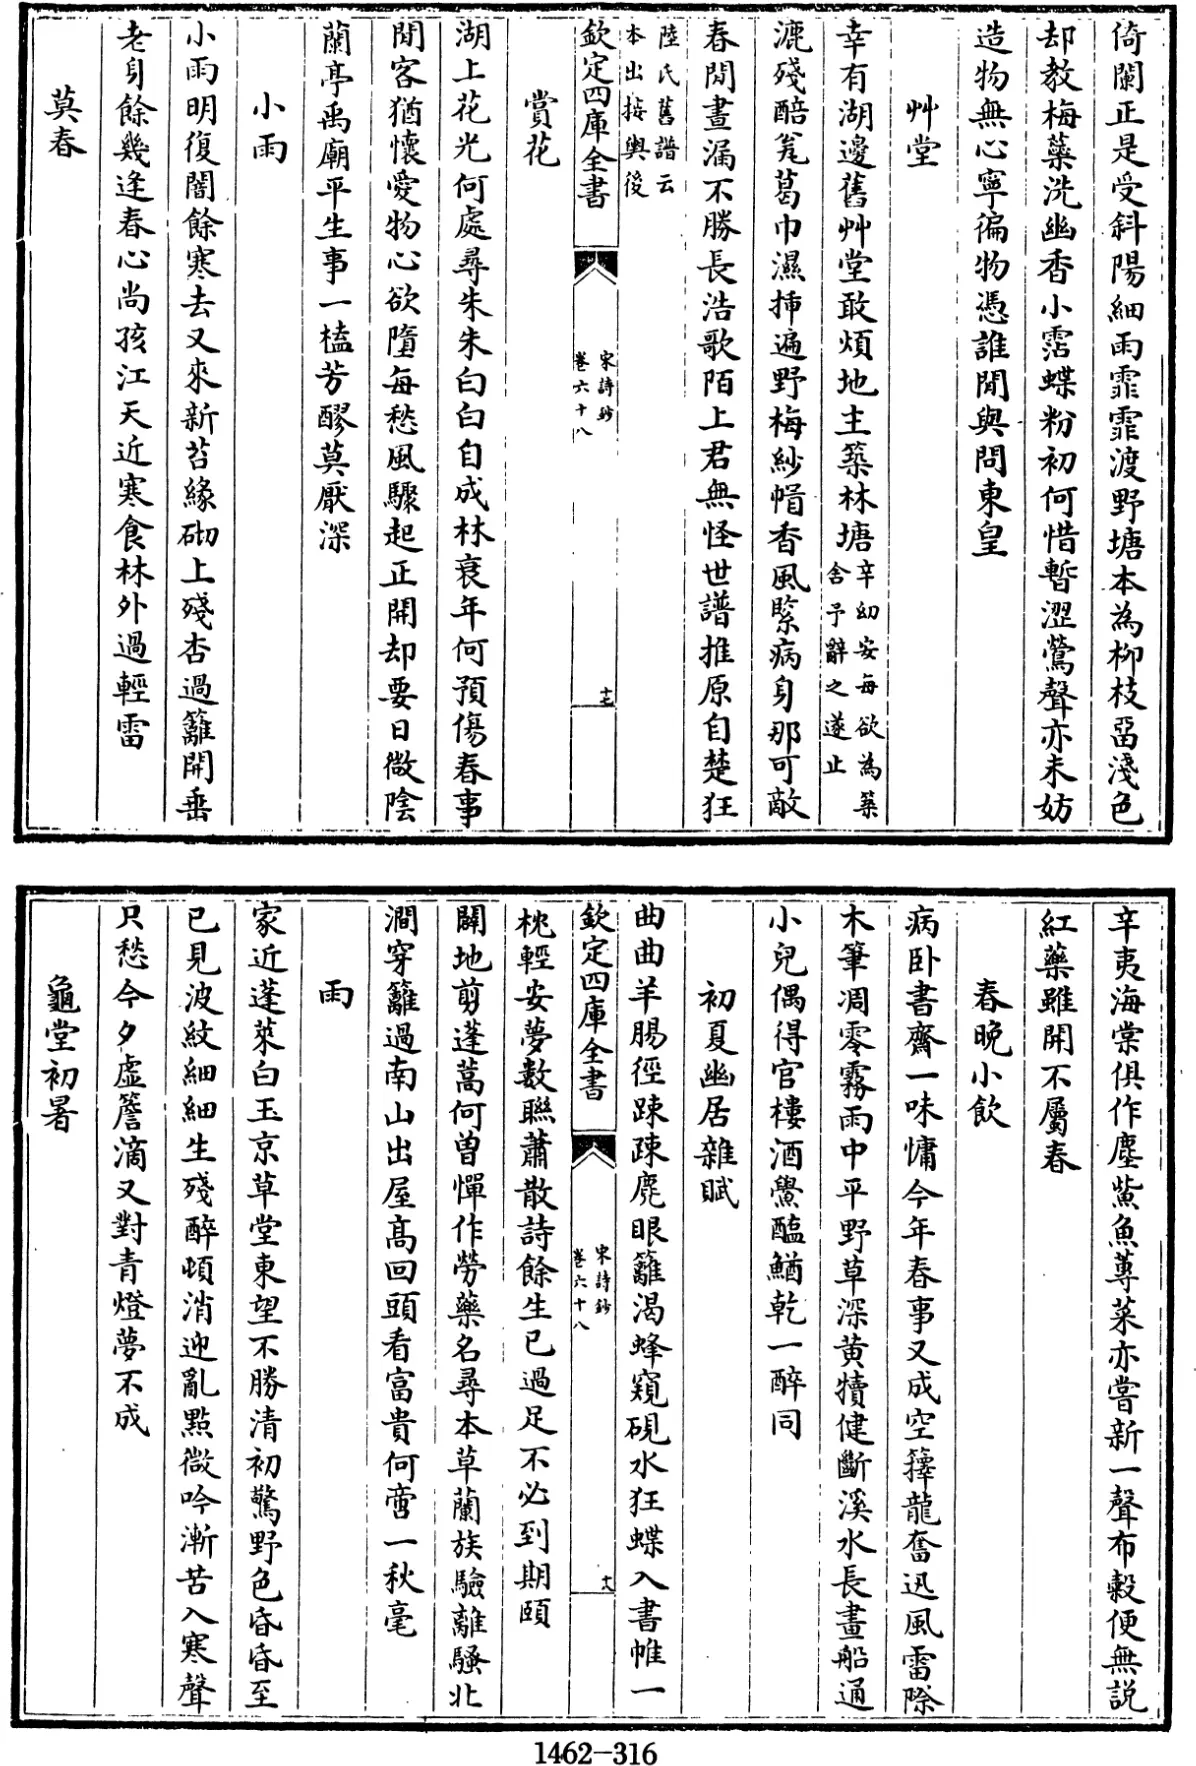 倚闌正是受斜陽細雨霏霏渡野塘本為柳枝留淺色
却教梅蘂洗幽香小霑蝶粉初何惜暫澀鶯聲亦未妨
造物無心寧徧物憑誰閒與問東皇
艸堂
幸有湖邊舊艸堂敢煩地主築林塘辛幼安每欲為築舍予辭之遂止
漉殘醅瓮葛巾濕揷遍野梅紗帽香風緊病身那可敵
春閒晝漏不勝長浩歌陌上君無怪世譜推原自楚狂
陸氏舊譜云
本出接輿後
欽定四庫全書
宋詩鈔
卷六十八
十七
賞花
湖上花光何處尋朱朱白白自成林衰年何預傷春事
閒客猶懷愛物心欲墮每愁風驟起正開却要日微陰
蘭亭禹廟平生事一榼芳醪莫厭深
小雨
小雨明復闇餘寒去又來新苔緣砌上殘杏過籬開垂
老身餘幾逢春心尚孩江天近寒食林外過輕雷
莫春
辛夷海棠俱作塵鮆魚蓴菜亦嘗新一聲布穀便無説
紅藥雖開不屬春
春晚小飲
病卧書齋一味慵今年春事又成空籜龍奮迅風雷際
木筆凋零霧雨中平野草深黄犢健斷溪水長畫船通
小兒偶得官樓酒鱟醢鰌乾一醉同
初夏幽居雜賦
曲曲羊腸徑踈踈麂眼籬渴蜂窺硯水狂蝶入書帷一
欽定四庫全書
宋詩鈔
卷六十八
十八
枕輕安夢數聯蕭散詩餘生已過足不必到期頤
闢地剪蓬蒿何曾憚作勞藥名尋本草蘭族驗離騷北
澗穿籬過南山出屋髙回頭看富貴何啻一秋毫
雨
家近蓬萊白玉京草堂東望不勝清初驚野色昏昏至
已見波紋細細生殘醉頓消迎亂點微吟漸苦入寒聲
只愁今夕虛簷滴又對青燈夢不成
龜堂初暑
1462-316